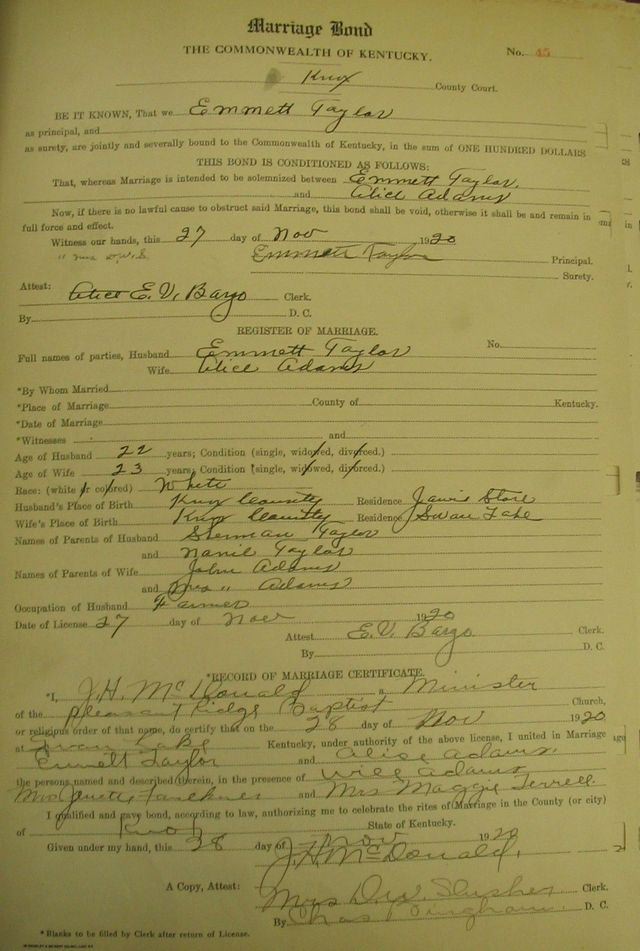 Marriage Bond
THE COMMONWEALTH OF KENTUCKY.
No. 45
Knox County Court.
BE IT KNOWN, That we Emmett Taylor
as principal, and
as surety, are jointly and severally bound to the Commonwealth of Kentucky, in the sum of ONE HUNDRED DOLLARS
THIS BOND IS CONDITIONED AS FOLLOWS:
That, whereas Marriage is intended to be solemnized between Emmett Taylor,
and Alice Adams
Now, if there is no lawful cause to obstruct said Marriage, this bond shall be void, otherwise it shall be and remain in
full force and effect.
Witness our hands, this 27 day of Nov 1920
Emmett Taylor Principal.
Surety.
Attest: E. V. Bargo Clerk.
By D. C.
REGISTER OF MARRIAGE.
Full names of parties, Husband Emmett Taylor No.
Wife Alice Adams
*By Whom Married
*Place of Marriage County of Kentucky.
*Date of Marriage
*Witnesses and
Age of Husband 22 years; Condition (single, widowed, divorced.)
Age of Wife 23 years; Condition (single, widowed, divorced.)
Race: (white or colored) White
Husband's Place of Birth Knox County Residence Jarvis Store
Wife's Place of Birth Knox County Residence Swan Lake
Names of Parents of Husband Sherman Taylor
and Nanie Taylor
Names of Parents of Wife John Adams
and Mrs " Adams
Occupation of Husband Farmer
Date of License 27 day of Nov 1920
Attest E. V. Bargo Clerk.
By D. C.
*RECORD OF MARRIAGE CERTIFICATE.
*I, J. H. McDonald a Minister
of the Pleasant Ridge Baptist Church,
or religious order of that name, do certify that on the 28 day of Nov 1920
at Swan Lake Kentucky, under authority of the above license, I united in Marriage
Emmett Taylor and Alise Adams,
the persons named and described therein, in the presence of Adams
Mrs Faulkner and Mrs Maggie Terrell.
I qualified and gave bond, according to law, authorizing me to celebrate the rites of Marriage in the County (or city)
of Knox State of Kentucky.
Given under my hand, this 28 day of Nov 1920
J. H. McDonald,
A Copy, Attest: Mrs D. W. Slusher Clerk.
By Chas Bingham D. C.
*Blanks to be filled by Clerk after return of License.